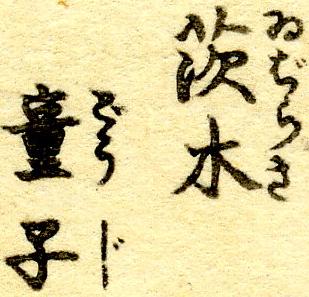 茨木
ゐばらき
童子
どうじ